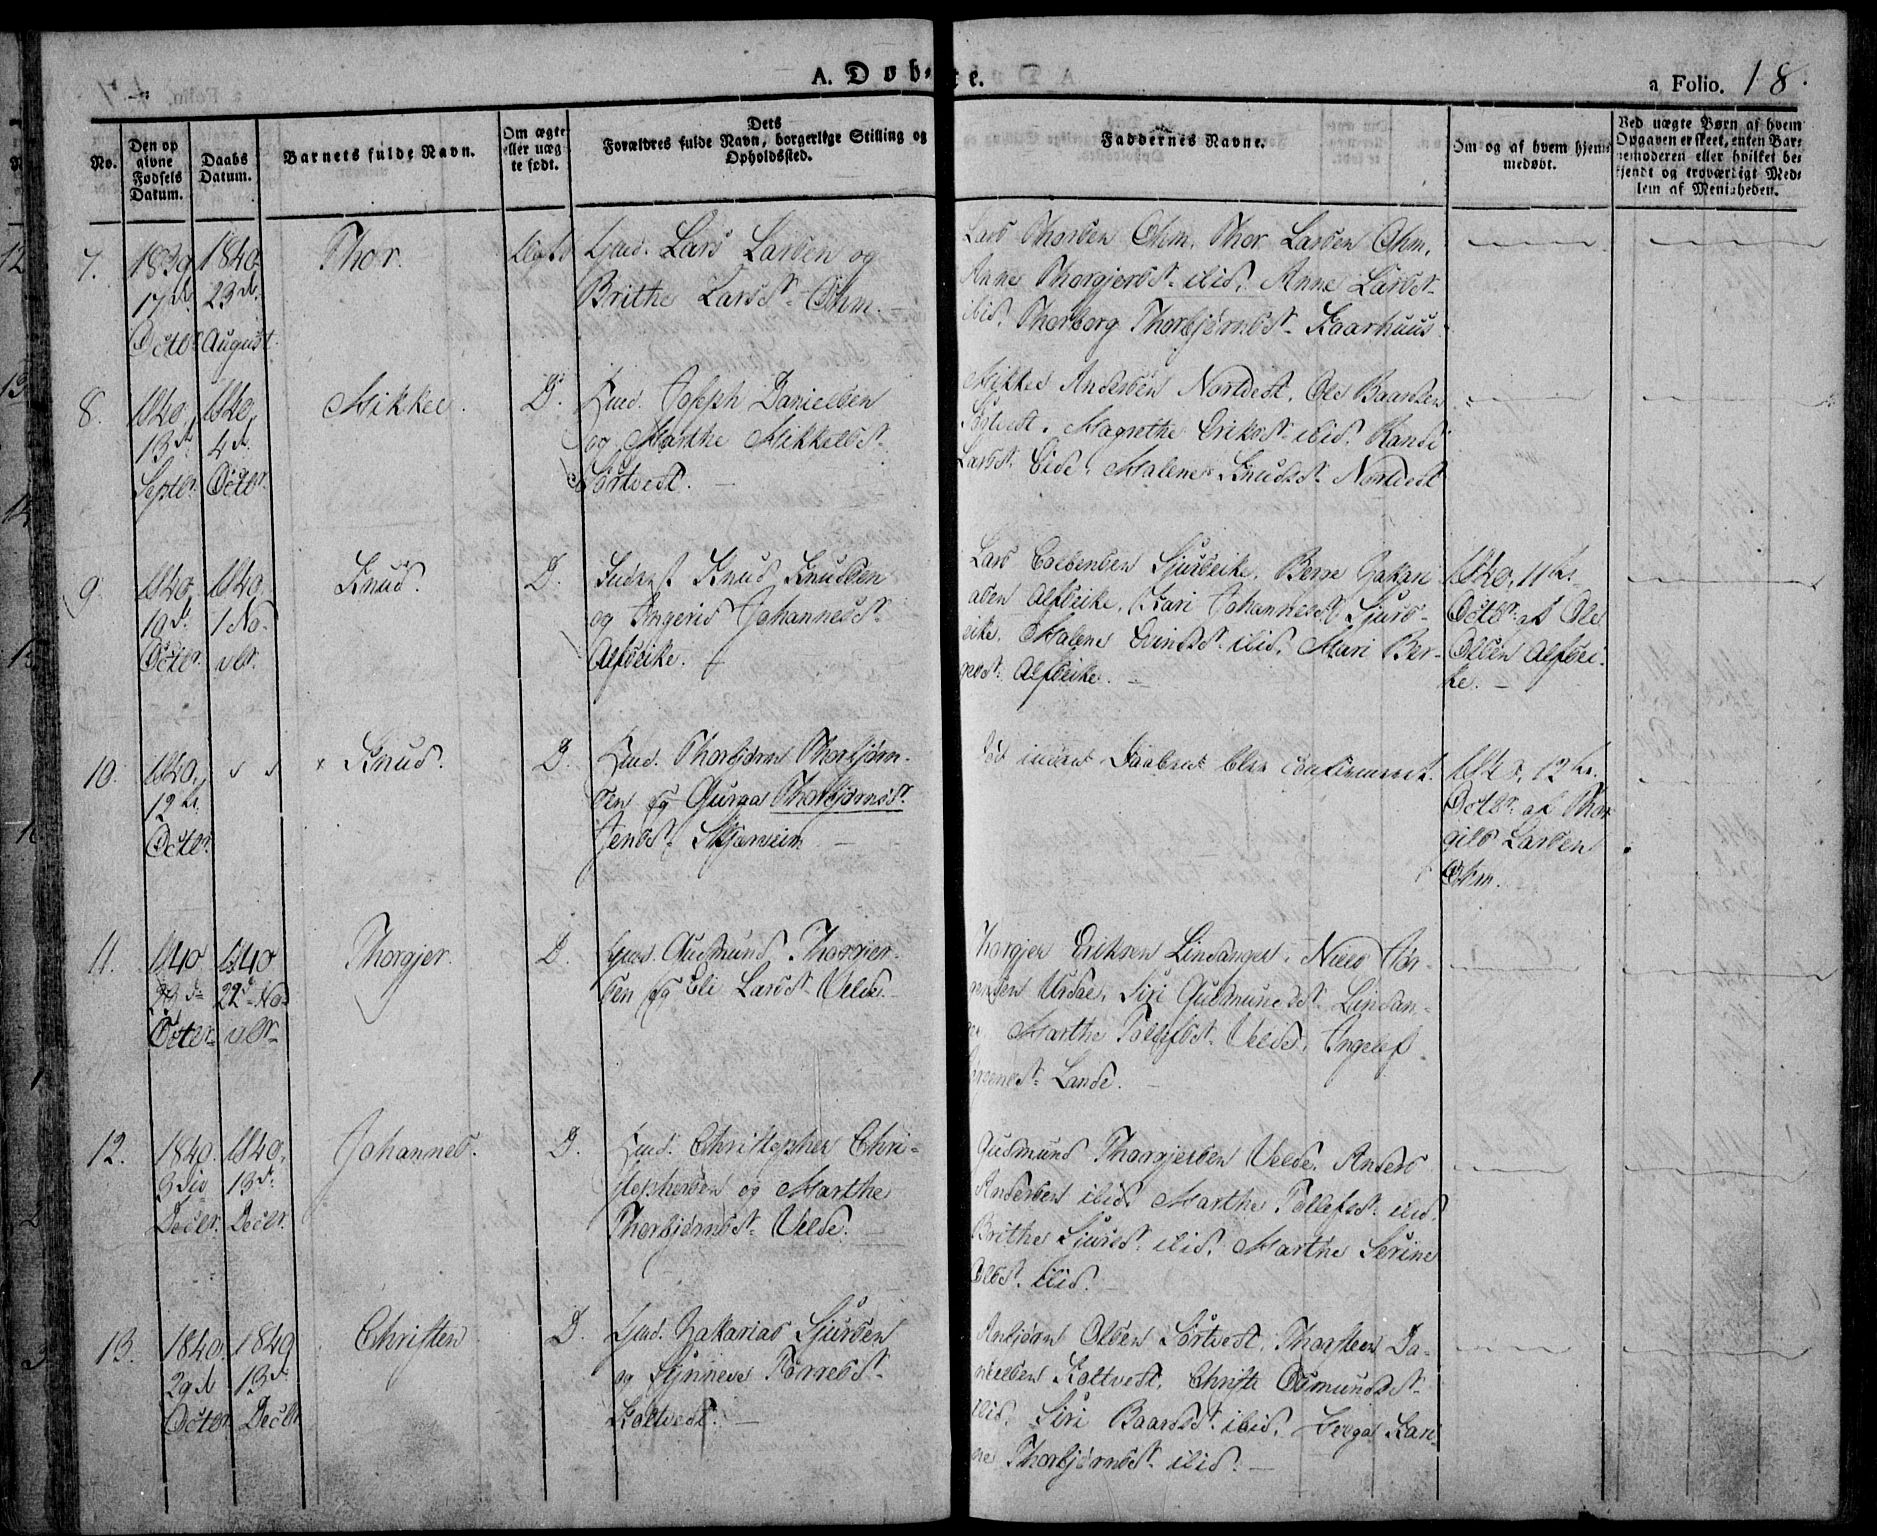 A. Døb-
te.
a Folio. 18.
No.
Den op
givne
Fødsels
Datum.
Daabs
Datum.
Barnets fulde Navn.
Om ægte
eller uæg-
te født.
Dets
Forældres fulde Navn, borgerlige Stilling og
Opholdssted.
Faddernes Navne.
Om og af hvem hjem-
medøbt.
Ved uægte Børn af hvem
Opgaven er skeet, enten Bar-
nemoderen eller hvilket be-
kjendt og troværdigt Med-
lem af Menigheden.
7.
1839
17d
Octbr
1840
23d.
August
Thor.
Ægte
Gmd. Lars Larsen og
Brithe Larsdt. Ohm.
Lars Thorsen Ohm, Thor Larsen Ohm,
Anne Thorgjersdt. ibid, Anne Larsdt.
ibid, Thorborg Thorbjørnsdt. Kaarhuus
8.
1840,
13d
Septbr.
1840,
4d.
Octbr.
Mikkel.
D.
Hmd. Joseph Danielsen
og Marthe Mikkelsdt.
Sørtvedt.
Mikkel Andersen Nortvedt, Ole Baardsen
Magrethe Eriksdt. ibid, Randi
Larsdt. Eide, Malene Knudsdt. Nortvedt
9.
1840,
10d.
Octbr.
1840,
1 No-
vbr.
Knud.
D.
Inderst Knud Knudsen
og Ingerid Johannesdt.
Alfseike.
Lars Sjurseike, Berge Zakari-
asen Alfseike, Kari Johannesdt. Sjurs-
eike, Malene Eivindsdt. ibid, Mari Ber-
gesdt. Alfseike.
1840, 11te
Octbr. af Ole
Olsen Alfsei-
ke.
10.
1840,
12te
Octbr.
Knud.
D.
Hmd. Thorbjørn Thorbjørn-
sen og Guroe Thorbjørnsdt.
Jensdt. Skjerveim
Død inden Daaben blev confirmeret.
1840, 12te
Octbr. af Thor-
gils Larsen
Ohm.
11.
1840
23d
Octbr.
1840
22d No-
vbr.
Thorgjer.
D.
Gmd. Gudmund Thorgjer-
sen og Eli Larsdt. Velde.
Thorgjer Eriksen Lindanger, Niels
Urdal, Siri Gudmundsdt. Lindan-
Marthe Tollefsdt. Velde, Ingelef
Lande.
12.
1840.
Decbr.
1840,
13d.
Decbr.
Johannes.
D.
Hmd. Christopher Chri-
stophersen og Marthe
Thorbjørnsdt. Velde.
Gudmund Thorgjersen Velde, Anders
Andersen ibid, Marthe Tollefsdt. ibid,
Brithe Sjursdt. ibid, Marthe Serine
Olsdt. ibid.
13.
1840.
29d
Octbr.
1840
13d.
Decbr.
Christen
D.
Gmd. Zakarias Sjursen
og Synneve Tørresdt.
Koltvedt.
Anbjørn Olsen Sørtvedt, Thorsteen Da-
nielsen Koltvedt, Christi Osmundsdt.
ibid, Siri Baardsdt. ibid, Serga Kari-
ne Thorbjørnsdt. ibid.